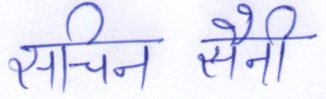 सचिन सैनी